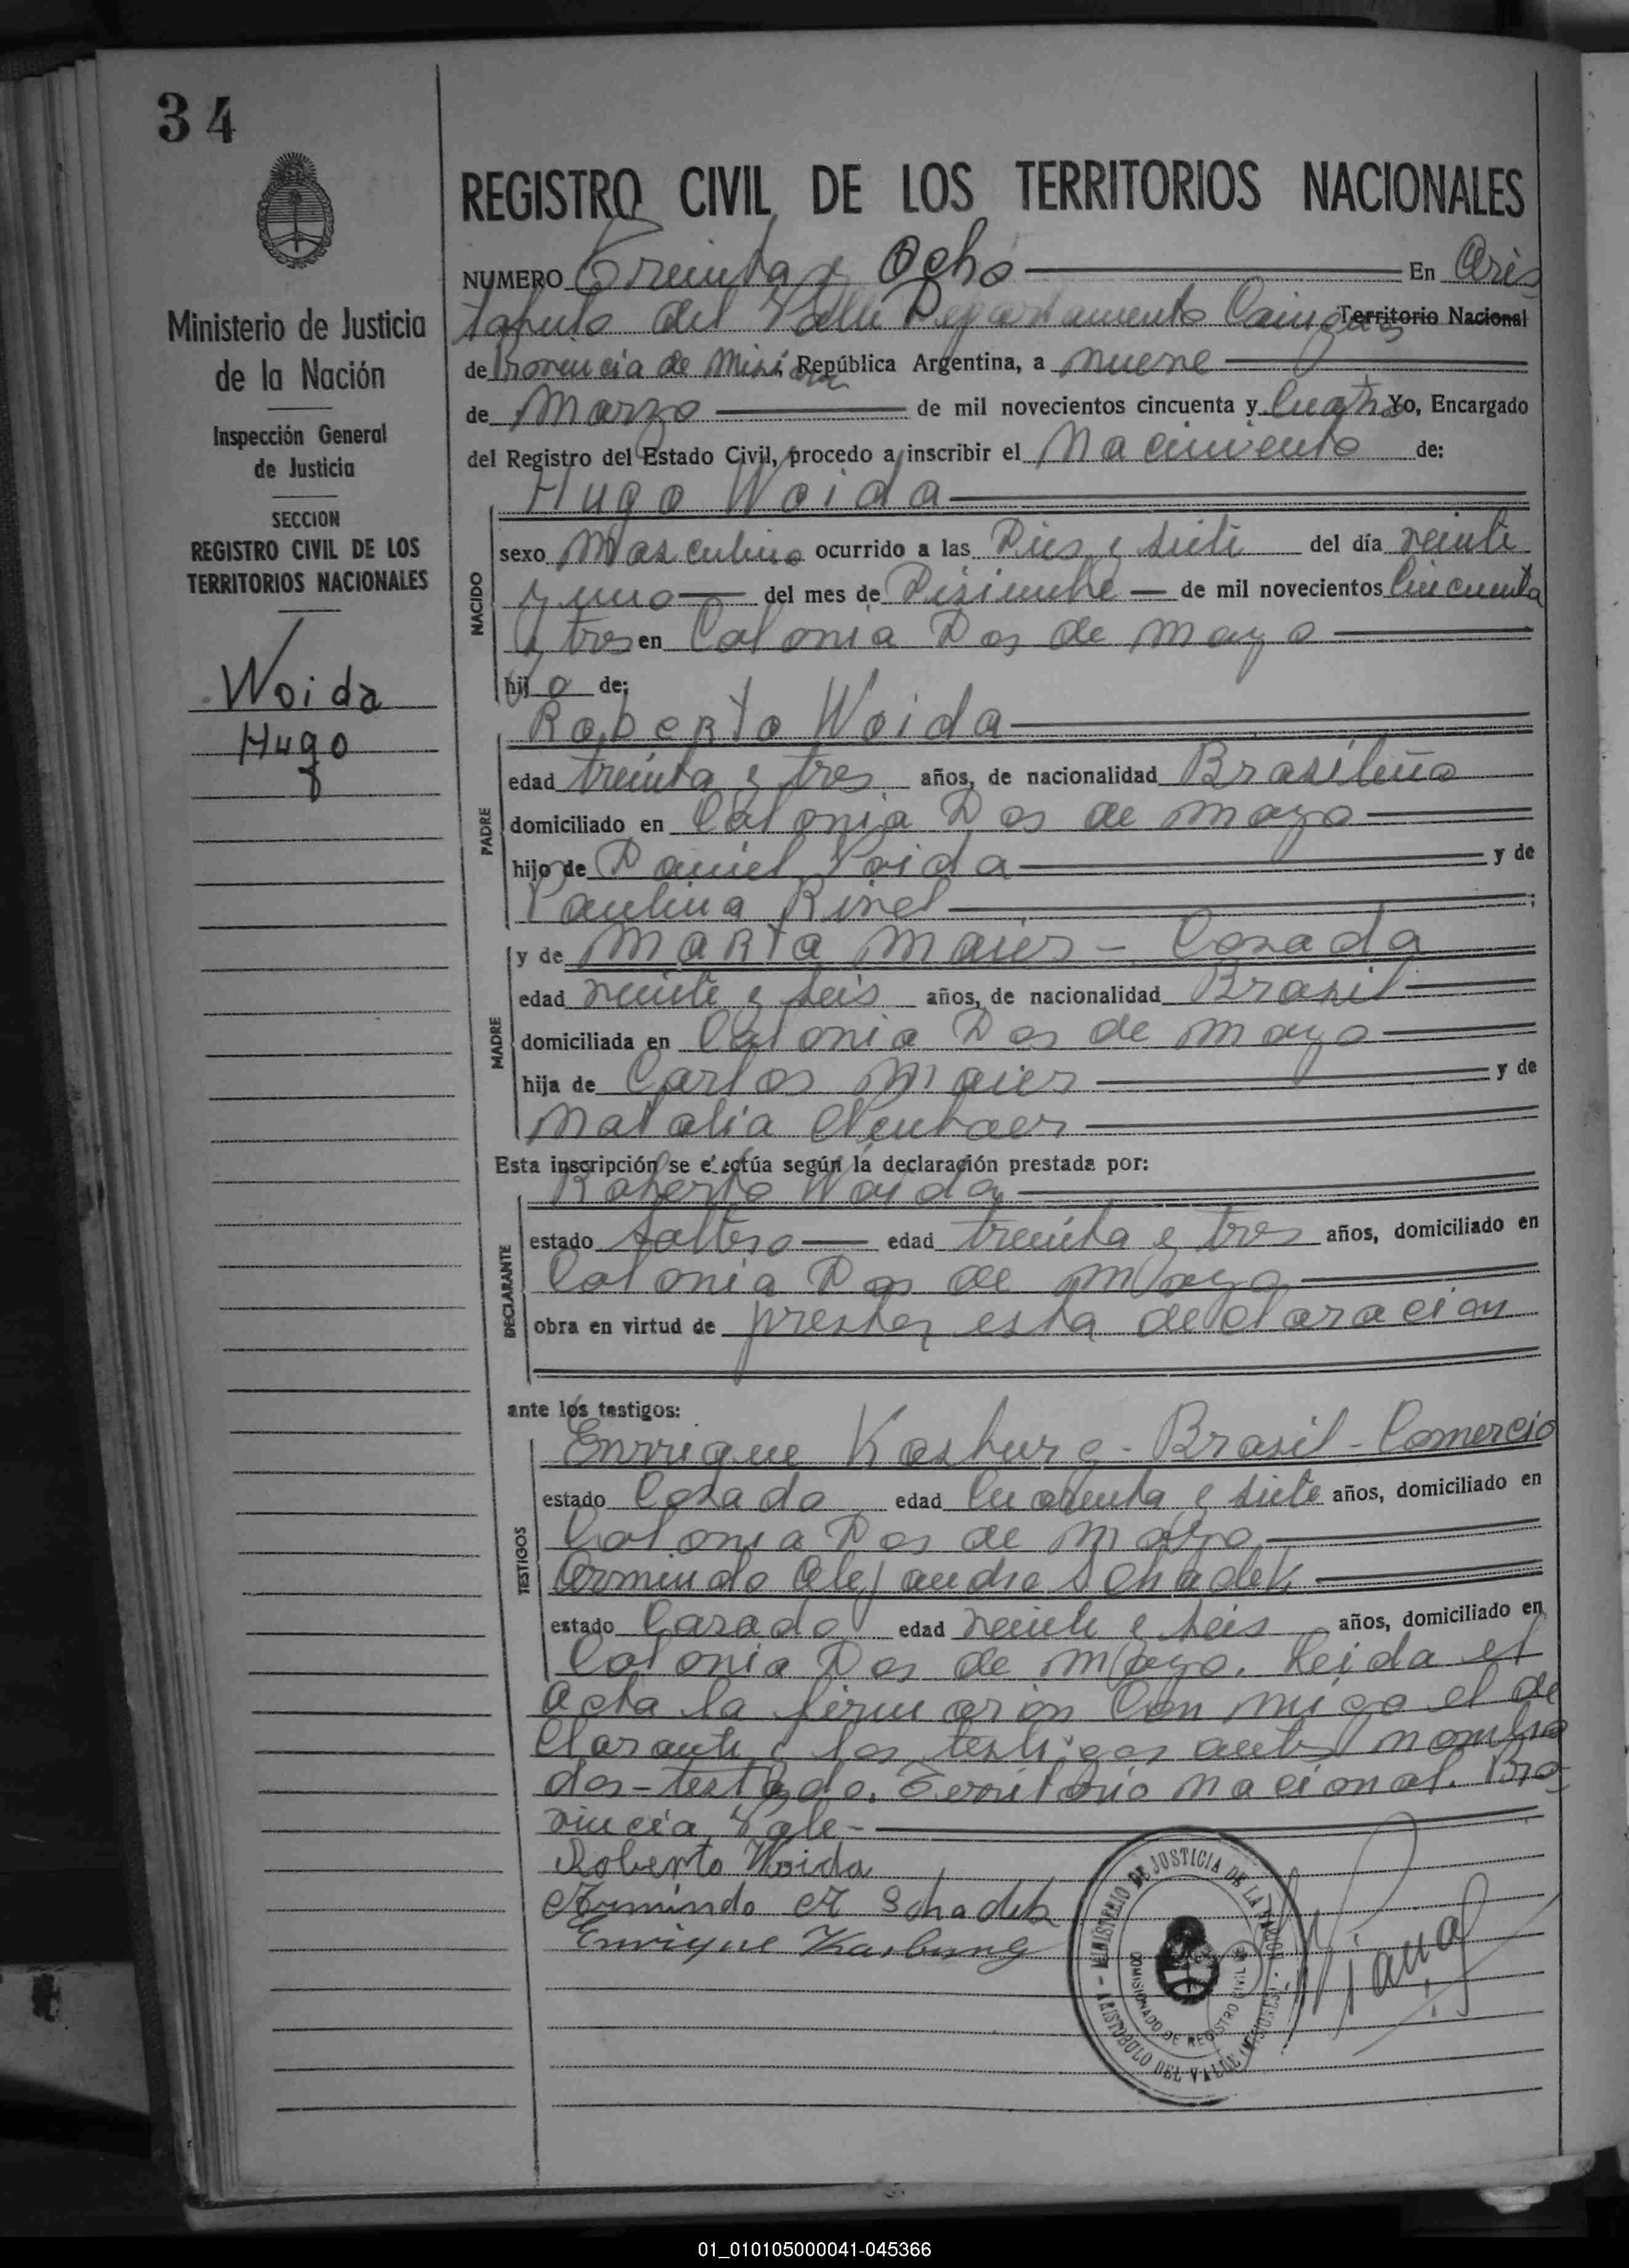 34
Ministerio de Justicia
de la Nación
Inspección General
de Justicia
SECCION
REGISTRO CIVIL DE LOS
TERRITORIOS NACIONALES
Woida
Hugo
REGISTRO CIVIL DE LOS TERRITORIOS NACIONALES
NUMERO Treinta y Ocho En Aris
tobulo del Valle Departamento Cainguas Territorio Nacional
de Provencia de Misiones República Argentina, a nueve
de Marzo de mil novecientos cincuenta y Cuatro Yo, Encargado
del Registro del Estado Civil, procedo a inscribir el Nacimiento de:
Hugo Woida
NACIDO
sexo Masculino ocurrido a las Dies e siete del día veinte
y uno del mes de Disiembre de mil novecientos Cincuenta
y tres en Colonia Dos de mayo
hijo de:
PADRE
Roberto Woida
edad treinta e tres años, de nacionalidad Brasileño
domiciliado en Colonia Dos de mayo
hijo de Daniel Voida y de
Paulina Rinel ;
MADRE
y de Marta Maier - Casada
edad veinte e seis años, de nacionalidad Brasil
domiciliada en Colonia Dos de mayo
hija de Carlos Maier y de
Natalia
Esta inscripción se efectúa según la declaración prestada por:
DECLARANTE
Roberto Woida
estado soltero edad treinta e tres años, domiciliado en
Colonia Dos de Mayo
obra en virtud de prestar esta declaracion
ante los testigos:
TESTIGOS
Enrrique Kasburg - Brasil - Comercio
estado Casado edad Cuarenta e siete años, domiciliado en
Colonia Dos de Mayo
Armindo Alejandro Schadek
estado Casado edad veinte e seis años, domiciliado en
Colonia Dos de Mayo. Leida el
acta la firmaron Con migo el de
Clarante e los testigos antes nombra
dos - testado. Territorio nacional. Pro
vincia Vale -
Roberto Woida
Armindo A Schadek
Enrique Kasburg
MINISTERIO DE JUSTICIA DE LA NACION
COMISIONADO DE REGISTRO CIVIL DE
ARISTOBULO DEL VALLE (MISIONES)
01_010105000041-045366